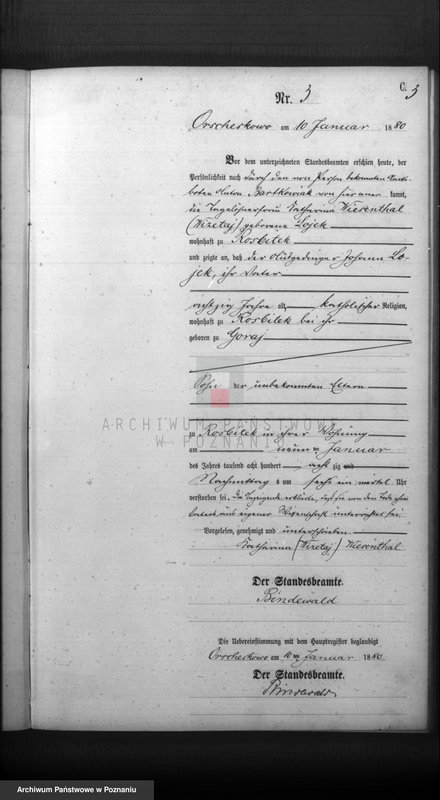 C.
3
Nr. 3
Orscheskowo am 10 Januar 1880
Vor dem unterzeichneten Standesbeamten erschien heute, der
Persönlichkeit nach durch den von Person bekannten Amts-
boten Anton Bartkowiak von hier aner kannt,
die Tagelöhnerfrau Katharina Wiesenthal
(Wizetaj) geborene Lojek
wohnhaft zu Rosbitek
und zeigte an, daß der Ausgedinger Johann Lo-
jek, ihr Vater
achtzig Jahre alt, katholischer Religion,
wohnhaft zu Rosbitek bei ihr
geboren zu Goraj
Sohn der unbekannten Eltern
ARCHIWUM PAŃSTWOWE
W POZNANIU
zu Rosbitek in ihrer Wohnung
am neun ten Januar
des Jahres tausend acht hundert acht zig und
Nachmittag s um sechs ein viertel Uhr
verstorben sei. Die Anzeigende erklärte, daß sie von dem Tode ihres
Vaters aus eigener Wissenschaft unterrichtet sei
Vorgelesen, genehmigt und unterschrieben
Katharina (Wizetaj) Wiesenthal
Der Standesbeamte.
Bindewald
Die Uebereinstimmung mit dem Hauptregister beglaubigt
Orscheskowo am 10 ten Januar 1880
Der Standesbeamte.
Bindewald
Archiwum Państwowe w Poznaniu